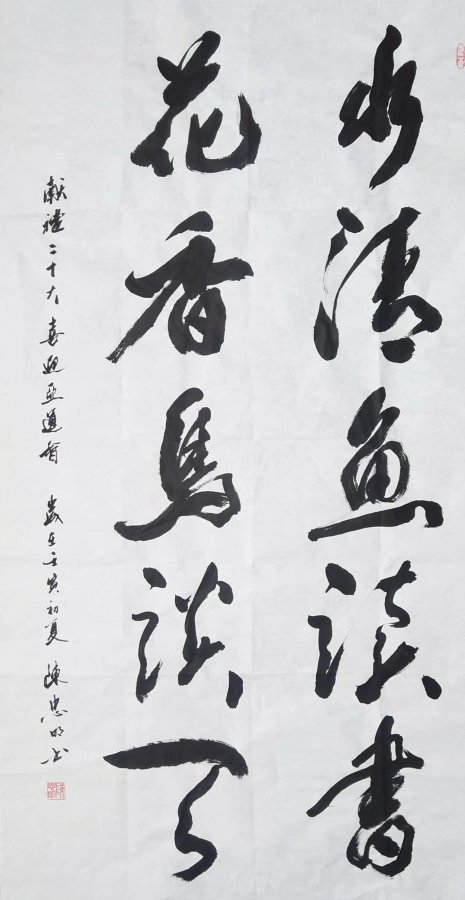 水清魚读書
花香鳥談天
献礼二十大 喜迎亚運會 歲在壬寅初夏 陳忠明书